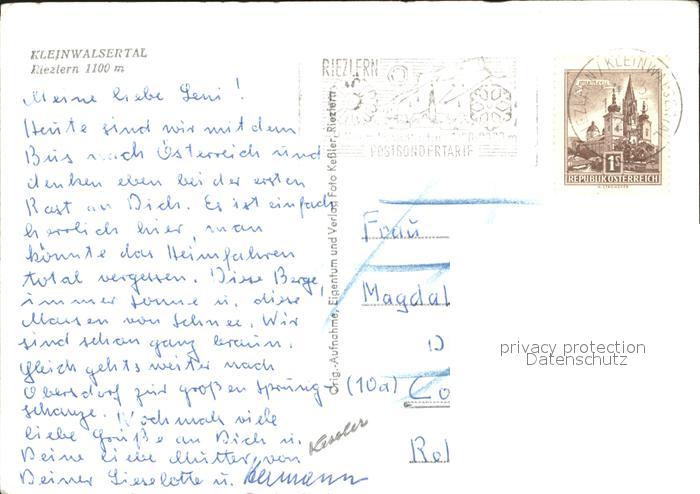 KLEINWALSERTAL
Riezlern 1100 m
Meine liebe Leni!
Heute sind wir mit dem
Bus nach Österreich und
denken eben bei der ersten
Rast an Dich. Es ist einfach
herrlich hier, man
könnte das Heimfahren
total vergessen. Diese Berge,
immer Sonne u. diese
Massen von Schnee. Wir
sind schon ganz braun.
Gleich gehts weiter nach
Oberstdorf zur großen Sprung-
schanze. Nochmals viele
liebe Grüße an Dich u.
Deine liebe Mutter, von
Deiner Lieselotte u. Hermann
Kessler
Orig.-Aufnahme, Eigentum und Verlag Foto Keßler, Riezlern
RIEZLERN
POSTSONDERTARIF
KLEINWALSERTAL
1S
REPUBLIK ÖSTERREICH
Frau
Magdal
D
(10a) Co
Rol
privacy protection
Datenschutz